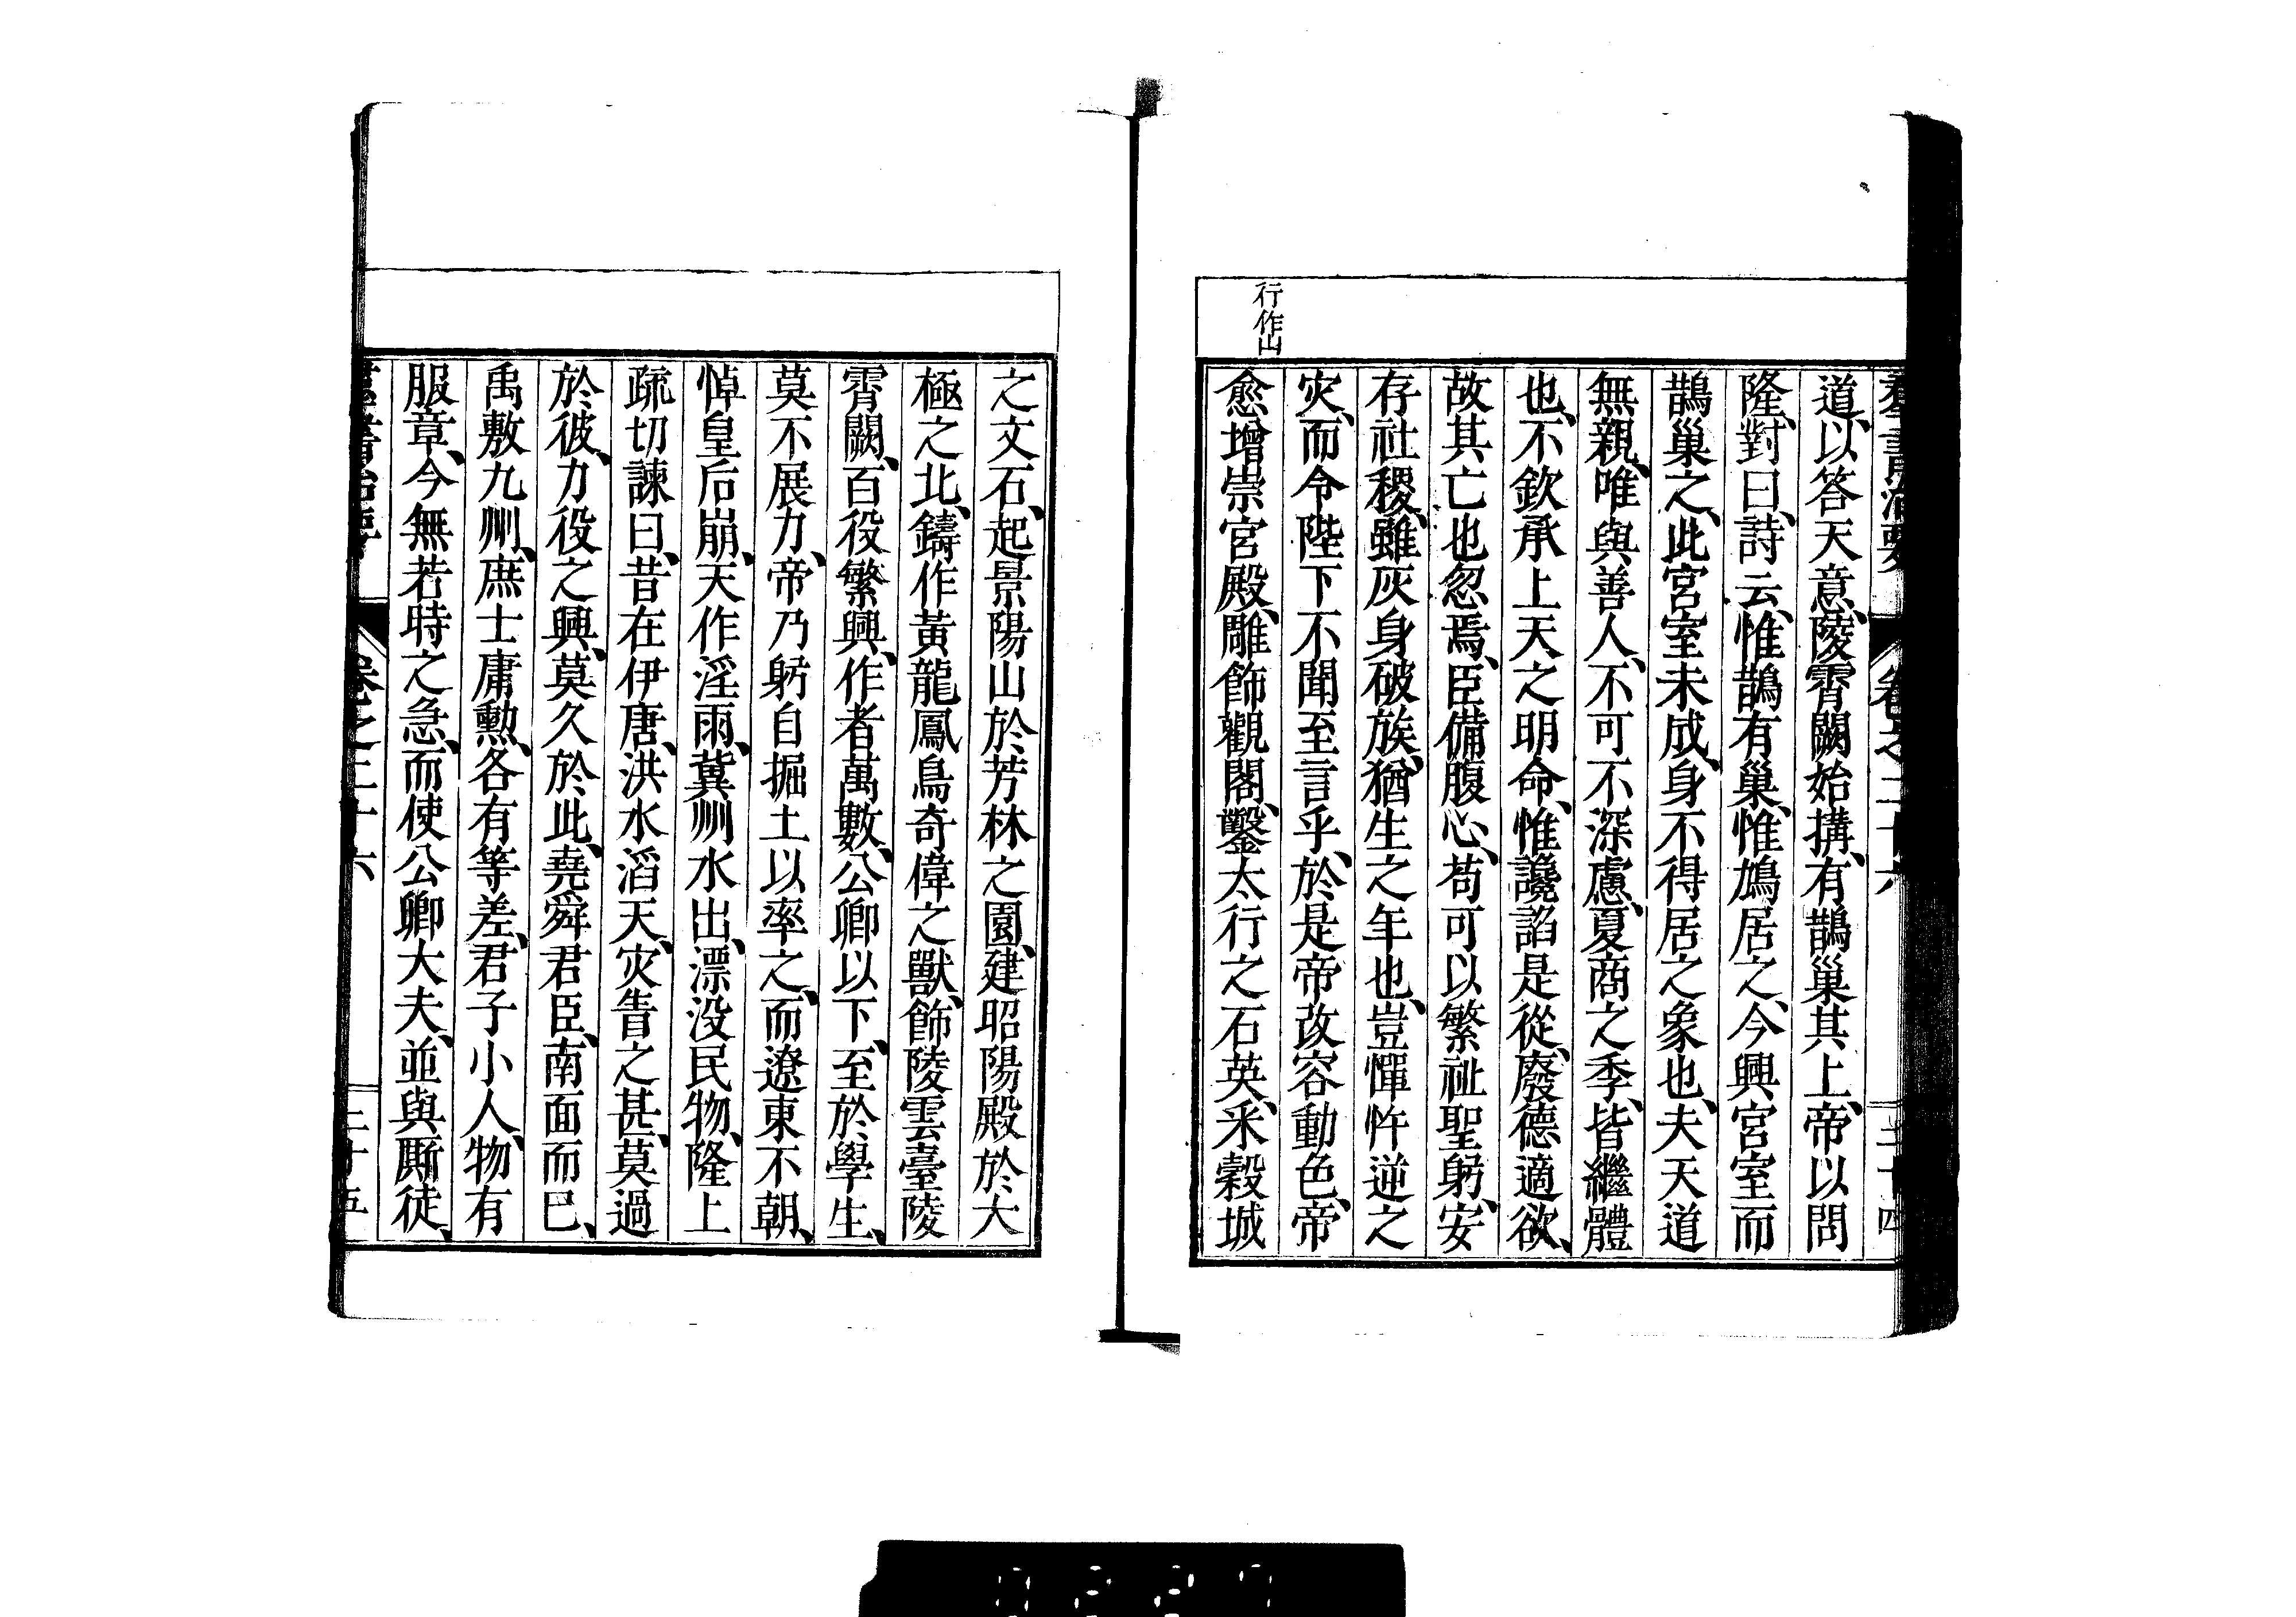 羣書治要 卷之二十六 二十四
道、以答天意、陵霄闕始搆、有鵲巢其上、帝以問
隆、對曰、詩云、惟鵲有巢、惟鳩居之、今興宮室而
鵲巢之、此宮室未成、身不得居之象也、夫天道
無親、唯與善人、不可不深慮、夏商之季、皆繼體
也、不欽承上天之明命、惟讒諂是從、廢德適欲、
故其亡也忽焉、臣備腹心、苟可以繁祉聖躬、安
存社稷、雖灰身破族、猶生之年也、豈憚忤逆之
灾、而令陛下不聞至言乎、於是帝改容動色、帝
行作山
愈增崇宮殿、雕飾觀閣、鑿太行之石英、采穀城
之文石、起景陽山於芳林之園、建昭陽殿於大
極之北、鑄作黃龍鳳鳥奇偉之獸、飾陵雲臺陵
霄闕、百役繁興、作者萬數、公卿以下、至於學生、
莫不展力、帝乃躬自掘土以率之、而遼東不朝、
悼皇后崩、天作淫雨、冀州水出、漂没民物、隆上
疏切諫曰、昔在伊唐、洪水滔天、灾眚之甚、莫過
於彼、力役之興、莫久於此、堯舜君臣、南面而已、
禹敷九州、庶士庸勲、各有等差、君子小人、物有
服章、今無若時之急、而使公卿大夫、並與厮徒、
羣書治要 卷之二十六 二十五